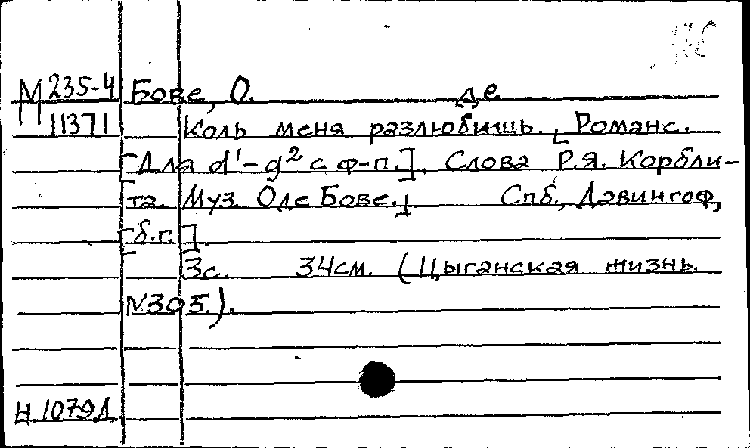 М 235-4 Бове, О. де
11371 Коль меня разлюбишь. [Романс.
[Для d'-g² с ф-п.]. Слова Р.Я. Корбли-
та. Муз. Оде Бове.] Спб., Давингоф,
[б.г.].
3с. 34см. (Цыганская жизнь.
№305.).
Н.1079Д